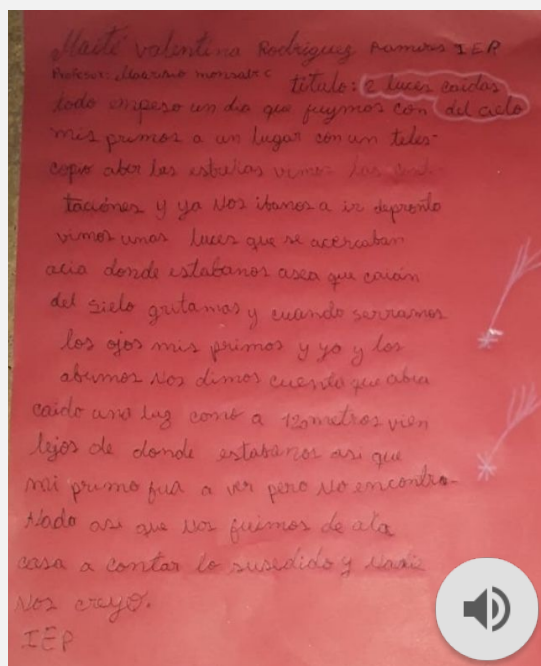 Maité valentina Rodriguez Ramires IER
Profesor: Mauricio monsalve
titulo: 2 luces caidas
del cielo
todo empeso un dia que fuymos con
mis primos a un lugar con un teles-
copio aber las estrellas vimos las
taciónes y ya Nos ibanos a ir depronto
vimos unas luces que se acercaban
acia donde estabanos asea que caian
del sielo gritamos y cuando serramos
los ojos mis primos y yo y los
abrimos Nos dimos cuenta que abia
caido una luz como a 120 metros vien
lejos de donde estabanos asi que
mi primo fua a ver pero No encontro
Nado asi que Nos fuimos de ala
casa a contar lo susedido y Nadie
Nos creyo.
IEP